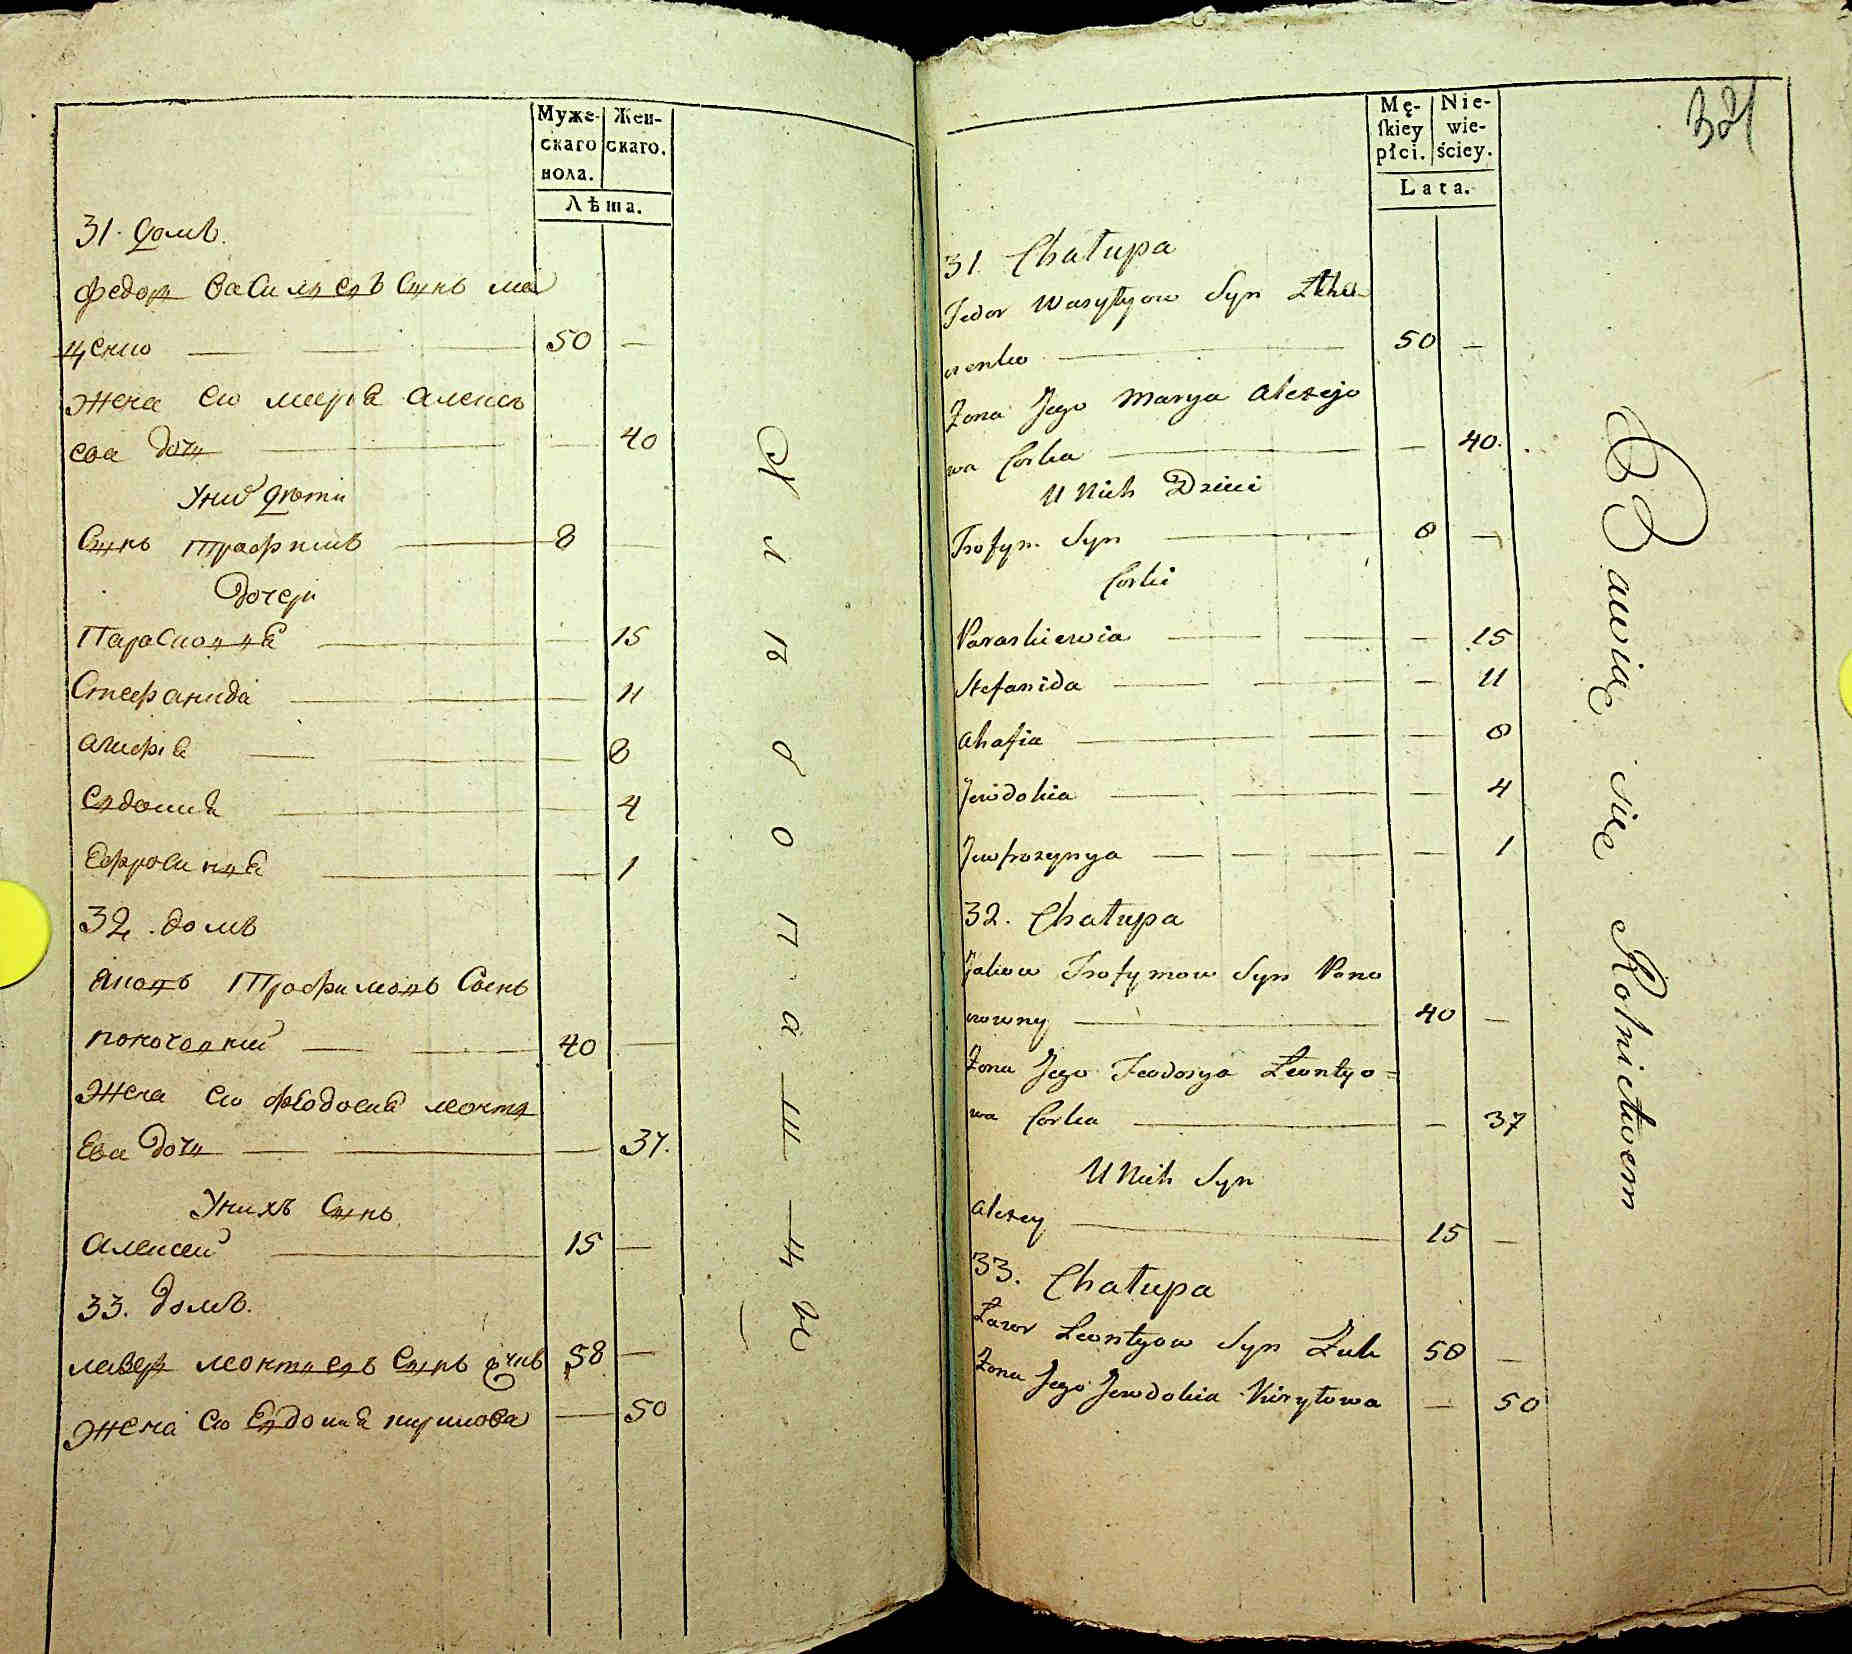 Муже-
скаго
пола.
Жен-
скаго.
Лѣта.
31. домъ
Федор Василиевъ Сынъ
40
50
Жена ево Мариа Алексѣ
ева дочь
Унихъ дети
Сынъ Трофимъ 8
Дочери
Парасковиа 15
Стефанида 11
Агафиа 8
Евдокиа 4
Ефросиниа 1
32. домъ
Яковъ Трофимовъ Сынъ
40
Жена ево Феодосиа Леонти
Ева дочь 37.
Унихъ Сынъ
Алексей 15
33. домъ.
Лавер Леонтиевъ Сынъ 58
Жена ево Евдокиа Кирилова 50
Хлѣбопашцы
32
Mę-
ſkiey
płci.
Nie-
wie-
ściey.
Lata.
31. Chałupa
Fedor Wasylyow Syn
50
Zona Jego Marya Alexejo
wa Corka 40.
U Nich Dzieci
Trofym Syn 8
Corki
Paraskiewia 15
Stefanida 11
Ahafia 8
Jewdokia 4
Jewfrozynya 1
32. Chałupa
Jakow Trofymow Syn
40
Zona Jego Feodosya Leontyo=
wa Corka 37
U Nich Syn
Alexey 15
33. Chałupa
Ławor Leontyow Syn Żuk 58
Zona Jego Jewdokia Kiryłowa 50
Bawią się Rolnictwem